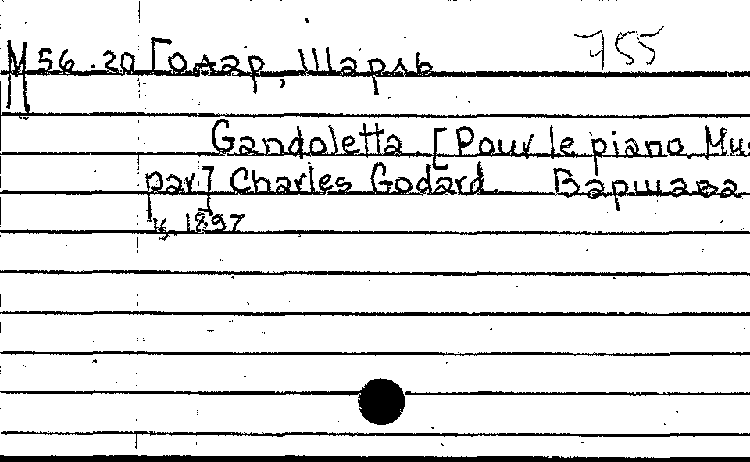 М 56.20 Годар, Шарль 755
Gandoletta [Pour le piano. Mus
par] Charles Godard Варшава
ц. 1897